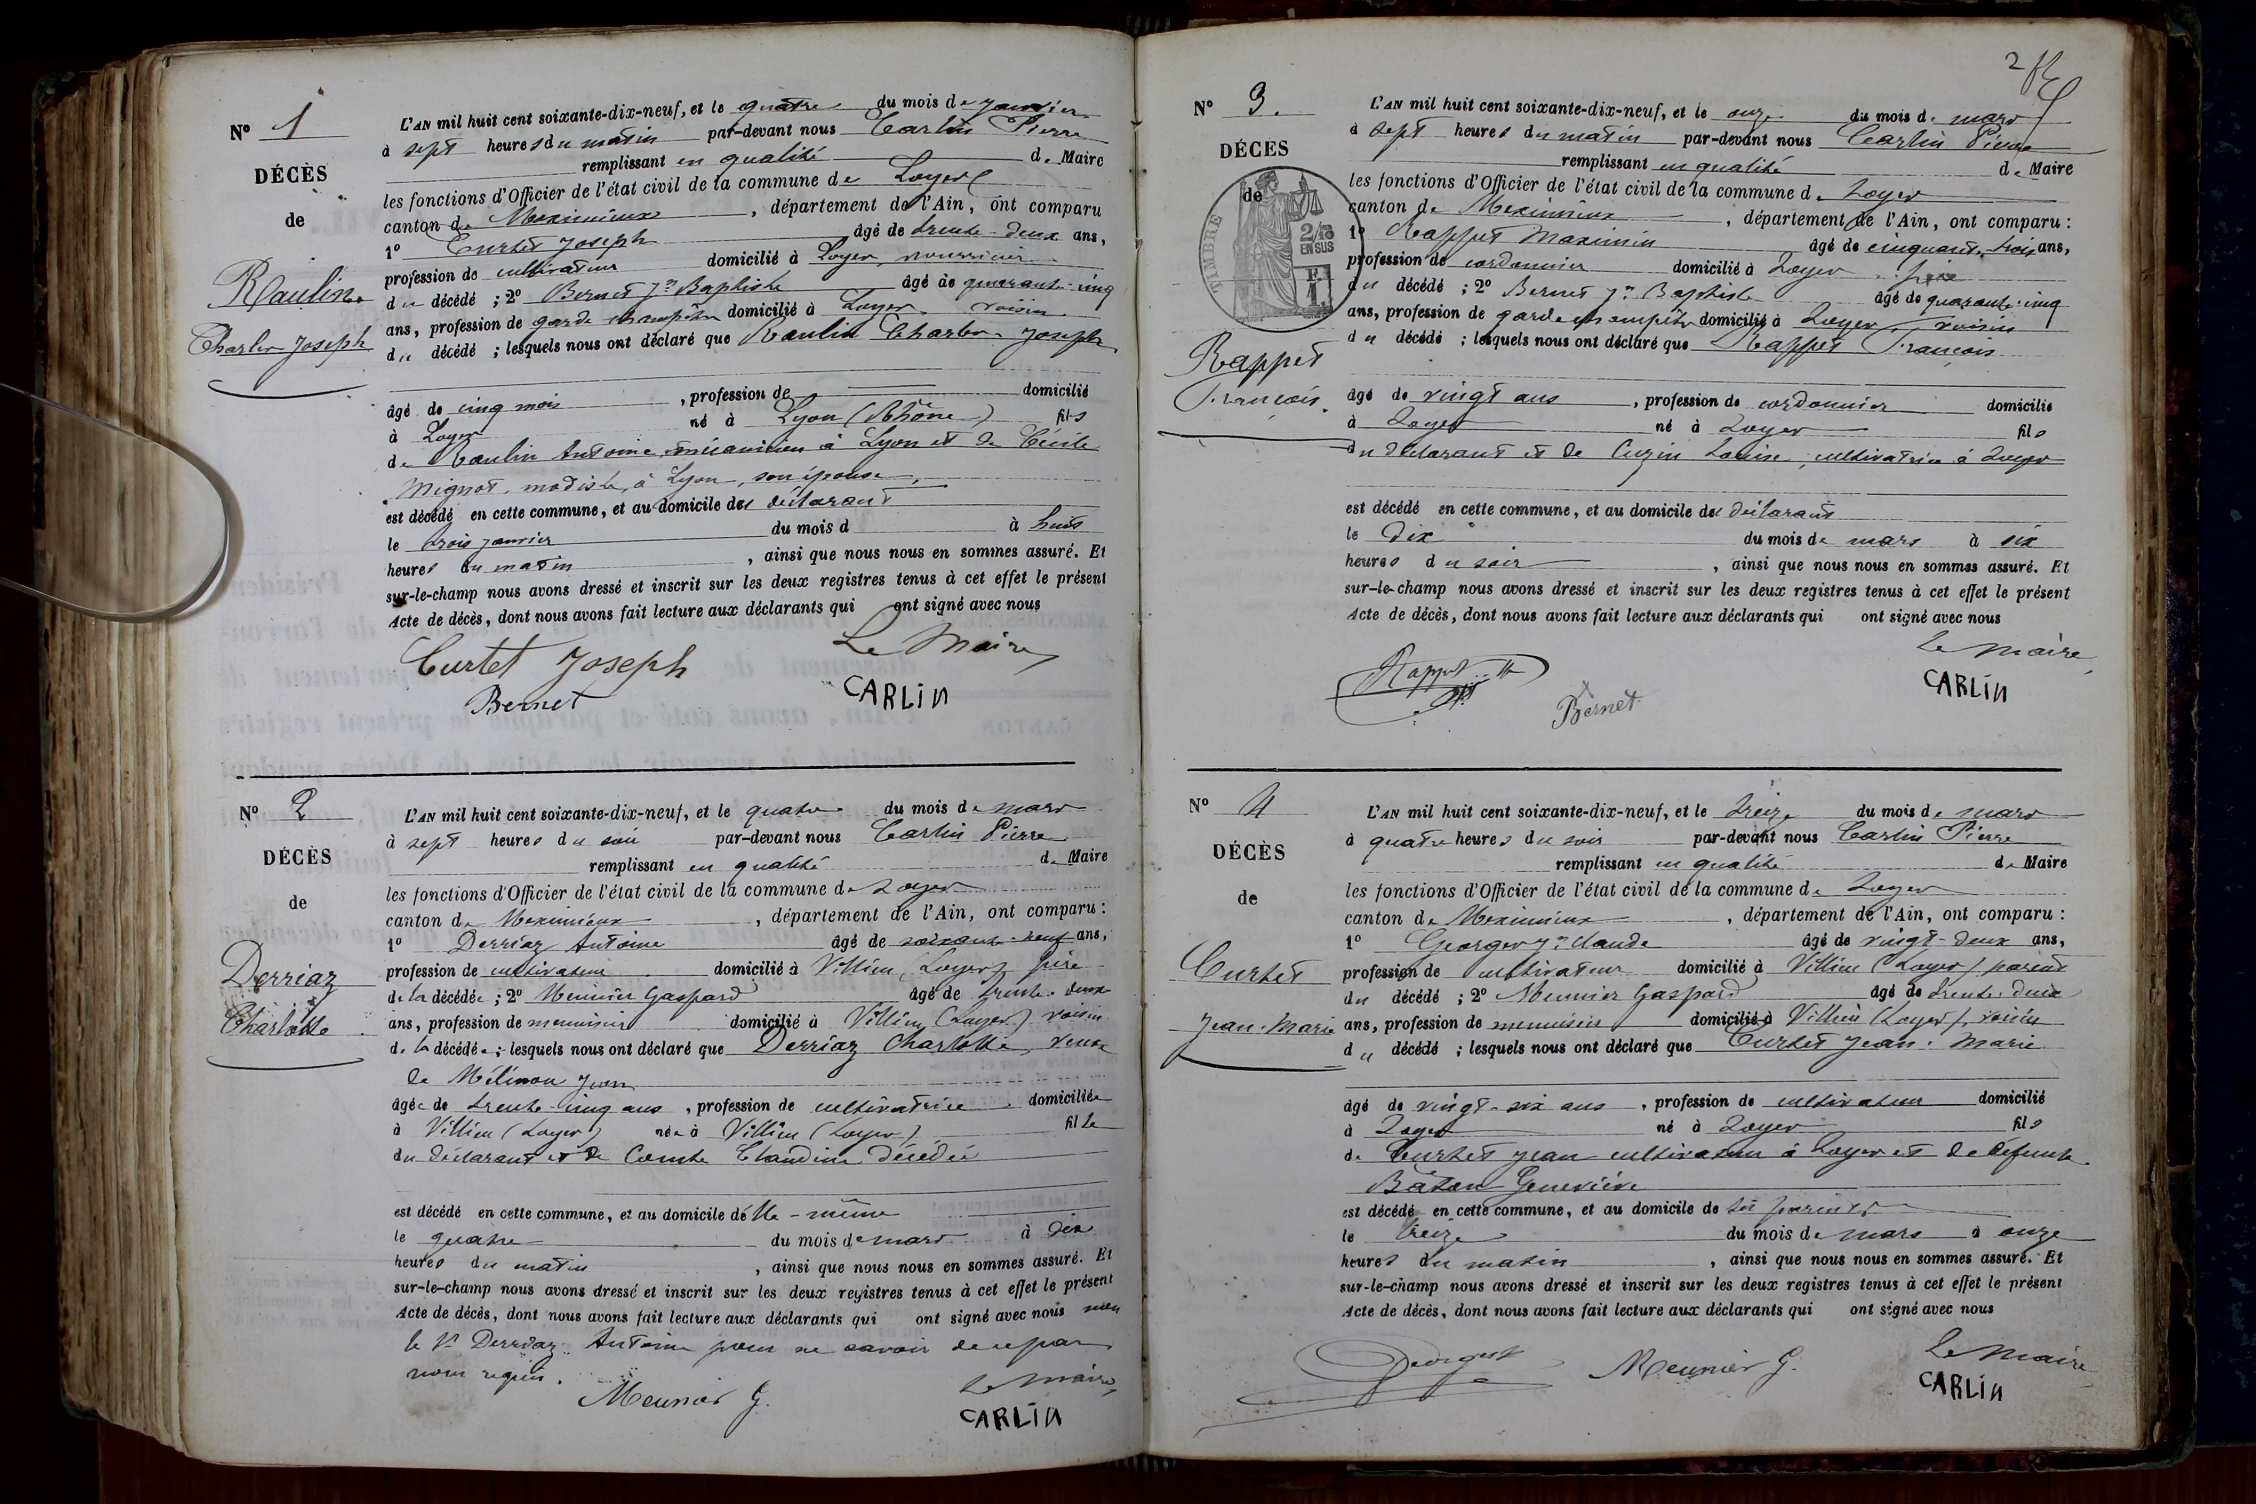 N° 1
DÉCÈS
de
Raulin
Charles Joseph
L'AN mil huit cent soixante-dix-neuf, et le quatre du mois de janvier
à sept heures du matin par-devant nous Carlin Pierre
remplissant en qualité de Maire
les fonctions d'Officier de l'état civil de la commune de Loyes
canton de Meximieux, département de l'Ain, ont comparu
1° Curtet Joseph âgé de trente-deux ans,
profession de cultivateur domicilié à Loyes, nourricier
du décédé ; 2° Bernet Jn Baptiste âgé de quarante-cinq
ans, profession de garde champêtre domicilié à Loyes, voisin
du décédé ; lesquels nous ont déclaré que Raulin Charles Joseph
âgé de cinq mois, profession de domicilié
à Loyes né à Lyon (Rhône) fils
de Raulin Antoine mécanicien à Lyon et de Cécile
Mignot, modiste, à Lyon, son épouse,
est décédé en cette commune, et au domicile du déclarant
le trois janvier du mois d à huit
heures du matin, ainsi que nous nous en sommes assuré. Et
sur-le-champ nous avons dressé et inscrit sur les deux registres tenus à cet effet le présent
Acte de décès, dont nous avons fait lecture aux déclarants qui ont signé avec nous
Curtet Joseph Le Maire
Bernet CARLIN
N° 2
DÉCÈS
de
Derriaz
Charlotte
L'AN mil huit cent soixante-dix-neuf, et le quatre du mois de mars
à sept heures du soir par-devant nous Carlin Pierre
remplissant en qualité de Maire
les fonctions d'Officier de l'état civil de la commune de Loyes
canton de Meximieux, département de l'Ain, ont comparu :
1° Derriaz Antoine âgé de soixante-neuf ans,
profession de cultivateur domicilié à Villieu (Loyes) père
de la décédée ; 2° Meunier Gaspard âgé de trente-deux
ans, profession de menuisier domicilié à Villieu (Loyes) voisin
de la décédée ; lesquels nous ont déclaré que Derriaz Charlotte, veuve
de Mélinon Jean
âgée de trente-cinq ans, profession de cultivatrice domiciliée
à Villieu (Loyes) née à Villieu (Loyes) fille
du déclarant et de Comte Claudine décédée
est décédé en cette commune, et au domicile d'elle-même
le quatre du mois de mars à dix
heures du matin, ainsi que nous nous en sommes assuré. Et
sur-le-champ nous avons dressé et inscrit sur les deux registres tenus à cet effet le présent
Acte de décès, dont nous avons fait lecture aux déclarants qui ont signé avec nous non
le Sr Derriaz Antoine pour ne savoir de ce par
nous requis.
Meunier G. Le Maire,
CARLIN
2
N° 3.
DÉCÈS
de
TIMBRE
2/10
EN SUS
F.
1.
Rappet
François.
L'AN mil huit cent soixante-dix-neuf, et le onze du mois de mars
à sept heures du matin par-devant nous Carlin Pierre
remplissant en qualité de Maire
les fonctions d'Officier de l'état civil de la commune de Loyes
canton de Meximieux, département de l'Ain, ont comparu :
1° Rappet Maximin âgé de cinquante-trois ans,
profession de cordonnier domicilié à Loyes père
du décédé ; 2° Bernet Jn Baptiste âgé de quarante-cinq
ans, profession de garde champêtre domicilié à Loyes, voisin
du décédé ; lesquels nous ont déclaré que Rappet François
âgé de vingt ans, profession de cordonnier domicilié
à Loyes né à Loyes fils
du déclarant et de Cuzin Louise, cultivatrice à Loyes
est décédé en cette commune, et au domicile du déclarant
le dix du mois de mars à six
heures du soir, ainsi que nous nous en sommes assuré. Et
sur-le-champ nous avons dressé et inscrit sur les deux registres tenus à cet effet le présent
Acte de décès, dont nous avons fait lecture aux déclarants qui ont signé avec nous
Le Maire,
Rappet Bernet CARLIN
N° 4
DÉCÈS
de
Curtet
Jean-Marie
L'AN mil huit cent soixante-dix-neuf, et le treize du mois de mars
à quatre heures du soir par-devant nous Carlin Pierre
remplissant en qualité de Maire
les fonctions d'Officier de l'état civil de la commune de Loyes
canton de Meximieux, département de l'Ain, ont comparu :
1° Georges Jn Claude âgé de vingt-deux ans,
profession de cultivateur domicilié à Villieu (Loyes) parent
du décédé ; 2° Meunier Gaspard âgé de trente-deux
ans, profession de menuisier domicilié à Villieu (Loyes), voisin
du décédé ; lesquels nous ont déclaré que Curtet Jean-Marie
âgé de vingt-six ans, profession de cultivateur domicilié
à Loyes né à Loyes fils
de Curtet Jean cultivateur à Loyes et de défunte
Bâton Geneviève
est décédé en cette commune, et au domicile de ses parents
le treize du mois de mars à onze
heures du matin, ainsi que nous nous en sommes assuré. Et
sur-le-champ nous avons dressé et inscrit sur les deux registres tenus à cet effet le présent
Acte de décès, dont nous avons fait lecture aux déclarants qui ont signé avec nous
Georges Meunier G. Le Maire,
CARLIN